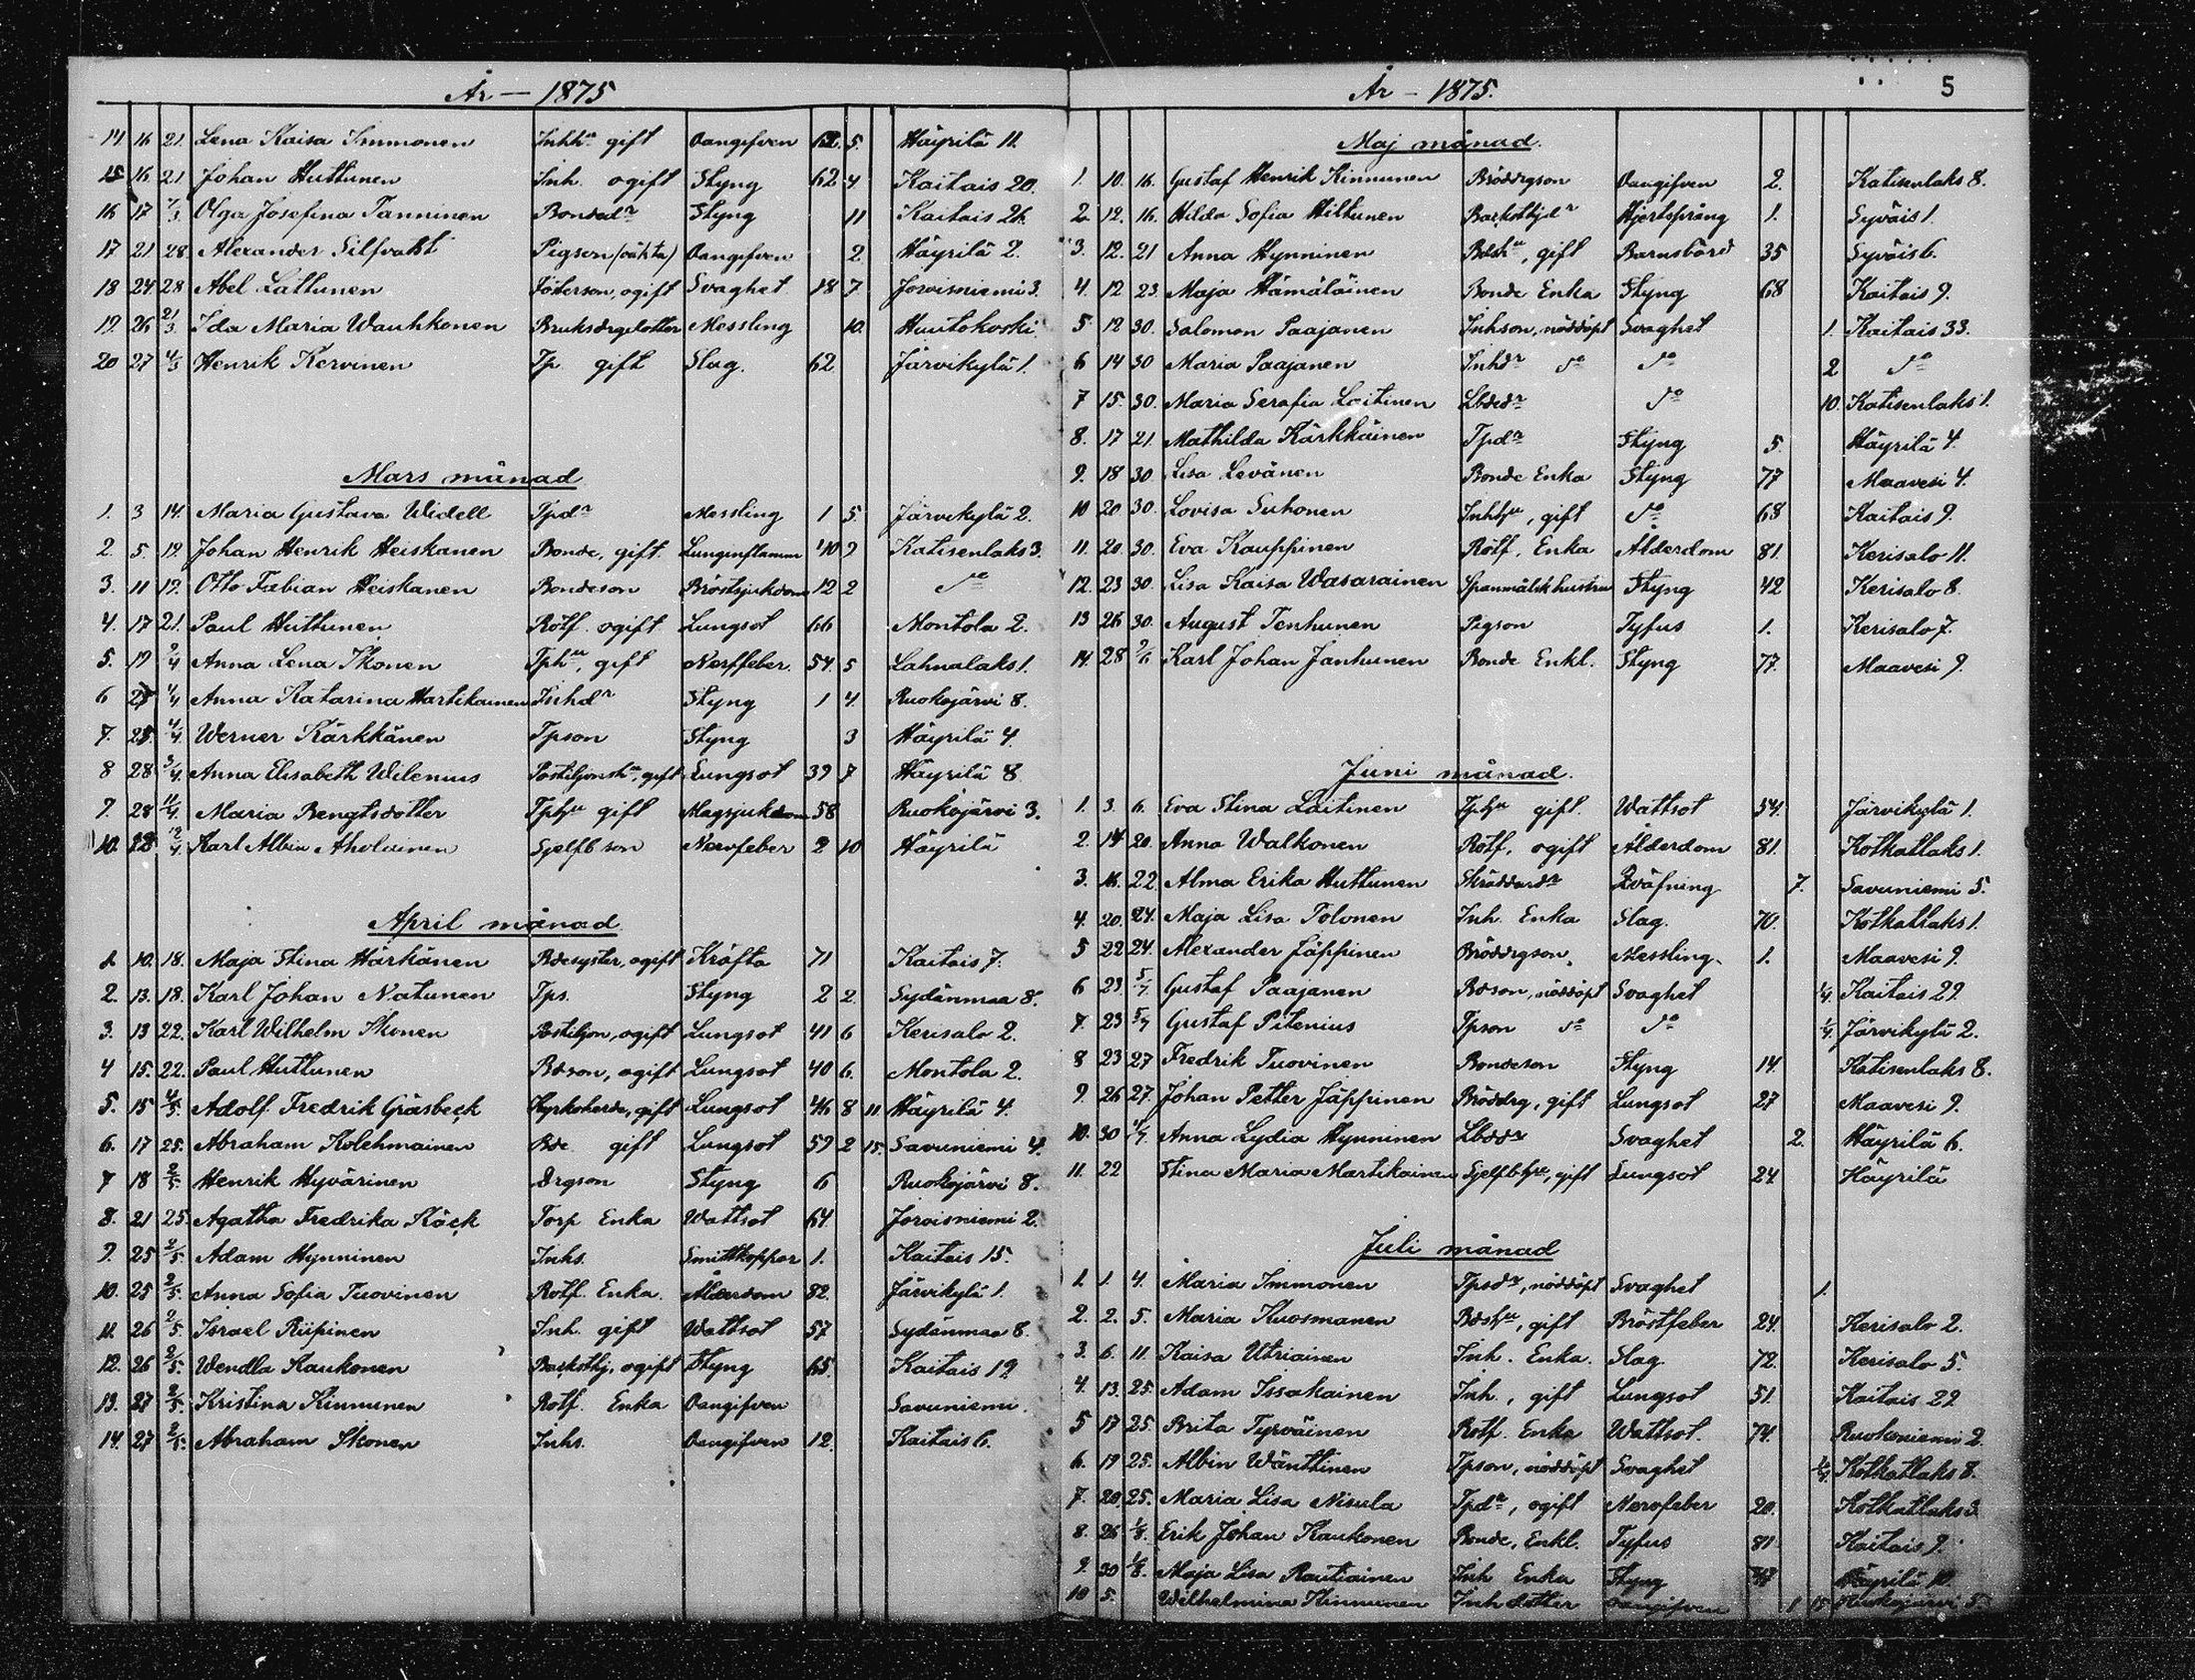 År — 1875
14 16 21. Lena Kaisa Immonen Inhhu gift Oangifven 62. 5. Häyrilä 11.
15 16. 21 Johan Huttunen Inh. ogift Styng 62 4. Kaitais 20.
16 17 7/3 Olga Josefina Tanninen Bondedr Styng 11 Kaitais 26.
17 21 28. Alexander Silfvast Pigson (oäkta) Oangifven 2. Häyrilä 2.
18 24 28 Abel Lattunen ogift Svaghet 18 7 Jorvisniemi 3.
19. 26 21/3 Ida Maria Wauhkonen Messling 10. Huutokoski
20 27 4/3 Henrik Kervinen Tp. gift Slag. 62 Järvikylä 1.
Mars månad
1. 3 14. Maria Gustava Widell Tpdr Messling 1 5. Järvikylä 2.
2. 5. 19. Johan Henrik Heiskanen Bonde, gift. Lunginflamm 40 9 Katisenlaks 3.
3. 11 19. Otto Fabian Heiskanen Bondeson Bröstsjukdom 12 2 do
4. 17 21. Paul Huttunen Rötf. ogift Lungsot 66 Montola 2.
5. 19 2/4 Anna Lena Ikonen Tphu, gift Nerffeber. 54. 5 Lahnalaks 1.
6 4/4 Anna Katarina Hartikainen Inhdr Styng 1 4. Ruokojärvi 8.
7. 25. 4/4. Werner Kärkkänen Tpson Styng 3 Häyrilä 4.
8 28 3/4. Anna Elisabeth Wilenius gift Lungsot 39 7 Häyrilä 8.
9. 28 11/4. Maria Bengtsdotter Tphu gift Magsjukdom 58 Ruokojärvi 3.
10. 28 Karl Albin Aholainen Sjelfb son Nervfeber 2 10 Häyrilä
April månad
1 10. 18. Maja Stina Härkänen Bdesyster, ogift Kräfta 71 Kaitais 7.
2. 13. 18. Karl Johan Natunen Tps. Styng 2 2. Sydänmaa 8.
3. 13 22. Karl Wilhelm Ikonen Postiljon, ogift Lungsot 41 6 Kerisalo 2.
4 15. 22. Paul Huttunen Bdson, ogift Lungsot 40 6. Montola 2.
5. 15 4/5. Adolf Fredrik Gräsbeck Kyrkoherde, gift Lungsot 46 8 11. Häyrilä 4.
6. 17 25. Abraham Kolehmainen Bde gift Lungsot 59 2 15. Savuniemi 4.
7 18 2/5. Henrik Hyvärinen Drgson Styng 6 Ruokojärvi 8.
8. 21 25. Agatha Fredrika Käck Torp Enka Wattsot 64. Jorvisniemi 2.
9. 25 2/5. Adam Hynninen Inhs. Smittkoppor 1. Kaitais 15.
10. 25 2/5. Anna Sofia Tuovinen Rötf. Enka. Ålderdom 82. Järvikylä 1.
11. 26 2/5. Israel Riipinen Inh. gift Wattsot 57 Sydänmaa 8.
12. 26 2/5. Wendla Kaukonen ogift Styng 65. Kaitais 19
13. 27 2/5. Kristina Kinnunen Rötf. Enka Oangifven Savuniemi.
14. 27 2/5. Abraham Ikonen Inhs. Oangifven 12. Kaitais 6.
År — 1875.
5
Maj månad.
1. 10. 16. Gustaf Henrik Kinnunen Bröddrgson Oangifven 2. Katisenlaks 8.
2. 12. 16. Hilda Sofia Hiltunen Hjertsprång 1. Syväis 1.
3. 12. 21 Anna Hynninen Bdshu, gift Barnsbörd 35 Syväis 6.
4. 12 23. Maja Hämäläinen Bonde Enka Styng 68 Kaitais 9.
5 12 30. Salomon Paajanen Inhson, nöddöpt Svaghet 1. Kaitais 33.
6 14 30 Maria Paajanen Inhdr do do 2 do
7 15. 30. Maria Serafia Loitinen Lbdedr do 10. Katisenlaks 1.
8. 17 21. Mathilda Kärkkäinen Tpdr Styng 5. Häyrilä 4.
9. 18 30 Lisa Levänen Bonde Enka Styng 77 Maavesi 4.
10 20 30. Lovisa Suhonen Inhhu, gift do 68 Kaitais 9.
11. 20. 30. Eva Kauppinen Rötf. Enka Ålderdom 81. Kerisalo 11.
12. 23 30. Lisa Kaisa Wasarainen Spanmålskhustru Styng 42 Kerisalo 8.
13 26 30. August Tenhunen Pigson Tyfus 1. Kerisalo 7.
14. 28 2/6 Karl Johan Janhunen Bonde Enkl. Styng 77. Maavesi 9.
Juni månad.
1. 3. 6. Eva Stina Laitinen Tphu gift. Wattsot 54. Järvikylä 1.
2. 14 20. Anna Walkonen Rötf, ogift Ålderdom 81. Kotkatlaks 1.
3. 16. 22 Alma Erika Huttunen Skräddardr Qväfning 7. Savuniemi 5.
4. 20. 24. Maja Lisa Tolonen Inh. Enka Slag. 70. Kotkatlaks 1.
5 22 24. Alexander Jäppinen Bröddrgson Messling. 1. Maavesi 9.
6 23. 5/7. Gustaf Paajanen Bdson, nöddöpt Svaghet 1/4. Kaitais 29.
7. 23 5/7 Gustaf Pitenius Tpson do do 1/4. Järvikylä 2.
8 23 27 Fredrik Tuovinen Bondeson Styng 14. Katisenlaks 8.
9. 26 27. Johan Petter Jäppinen Bröddrg, gift Lungsot 27 Maavesi 9.
10. 30 4/7 Anna Lydia Hynninen Lbddr Svaghet 2. Häyrilä 6.
11. 22 Stina Maria Martikainen Sjelfbhu, gift Lungsot 24. Häyrilä
Juli månad
1. 1. 4. Maria Immonen Tpsdr, nöddöpt Svaghet 1.
2. 2. 5. Maria Kuosmanen Bdshu, gift Bröstfeber 24. Kerisalo 2.
3. 6. 11. Kaisa Utriainen Inh. Enka. Slag. 72. Kerisalo 5.
4. 13. 25. Adam Issakainen Inh., gift Lungsot 51. Kaitais 22
5 17 25. Brita Tyrväinen Rotf. Enka Wattsot. 74. Ruokoniemi 2.
6. 19 25. Albin Wänttinen Tpson, nöddöpt Svaghet Kotkatlaks 8.
7. 20 25. Maria Lisa Nisula Tpdr, ogift Nervfeber 20. Kotkatlaks 3
8. 26 1/8. Erik Johan Kaukonen Bonde, Enkl. Tyfus 81 Kaitais 9.
9. 30 1/8. Maja Lisa Rautiainen Inh Enka Styng Häyrilä 10.
10 5. Wilhelmina Kinnunen Inh dotter Oangifven 1 15 Ruokojärvi 5.